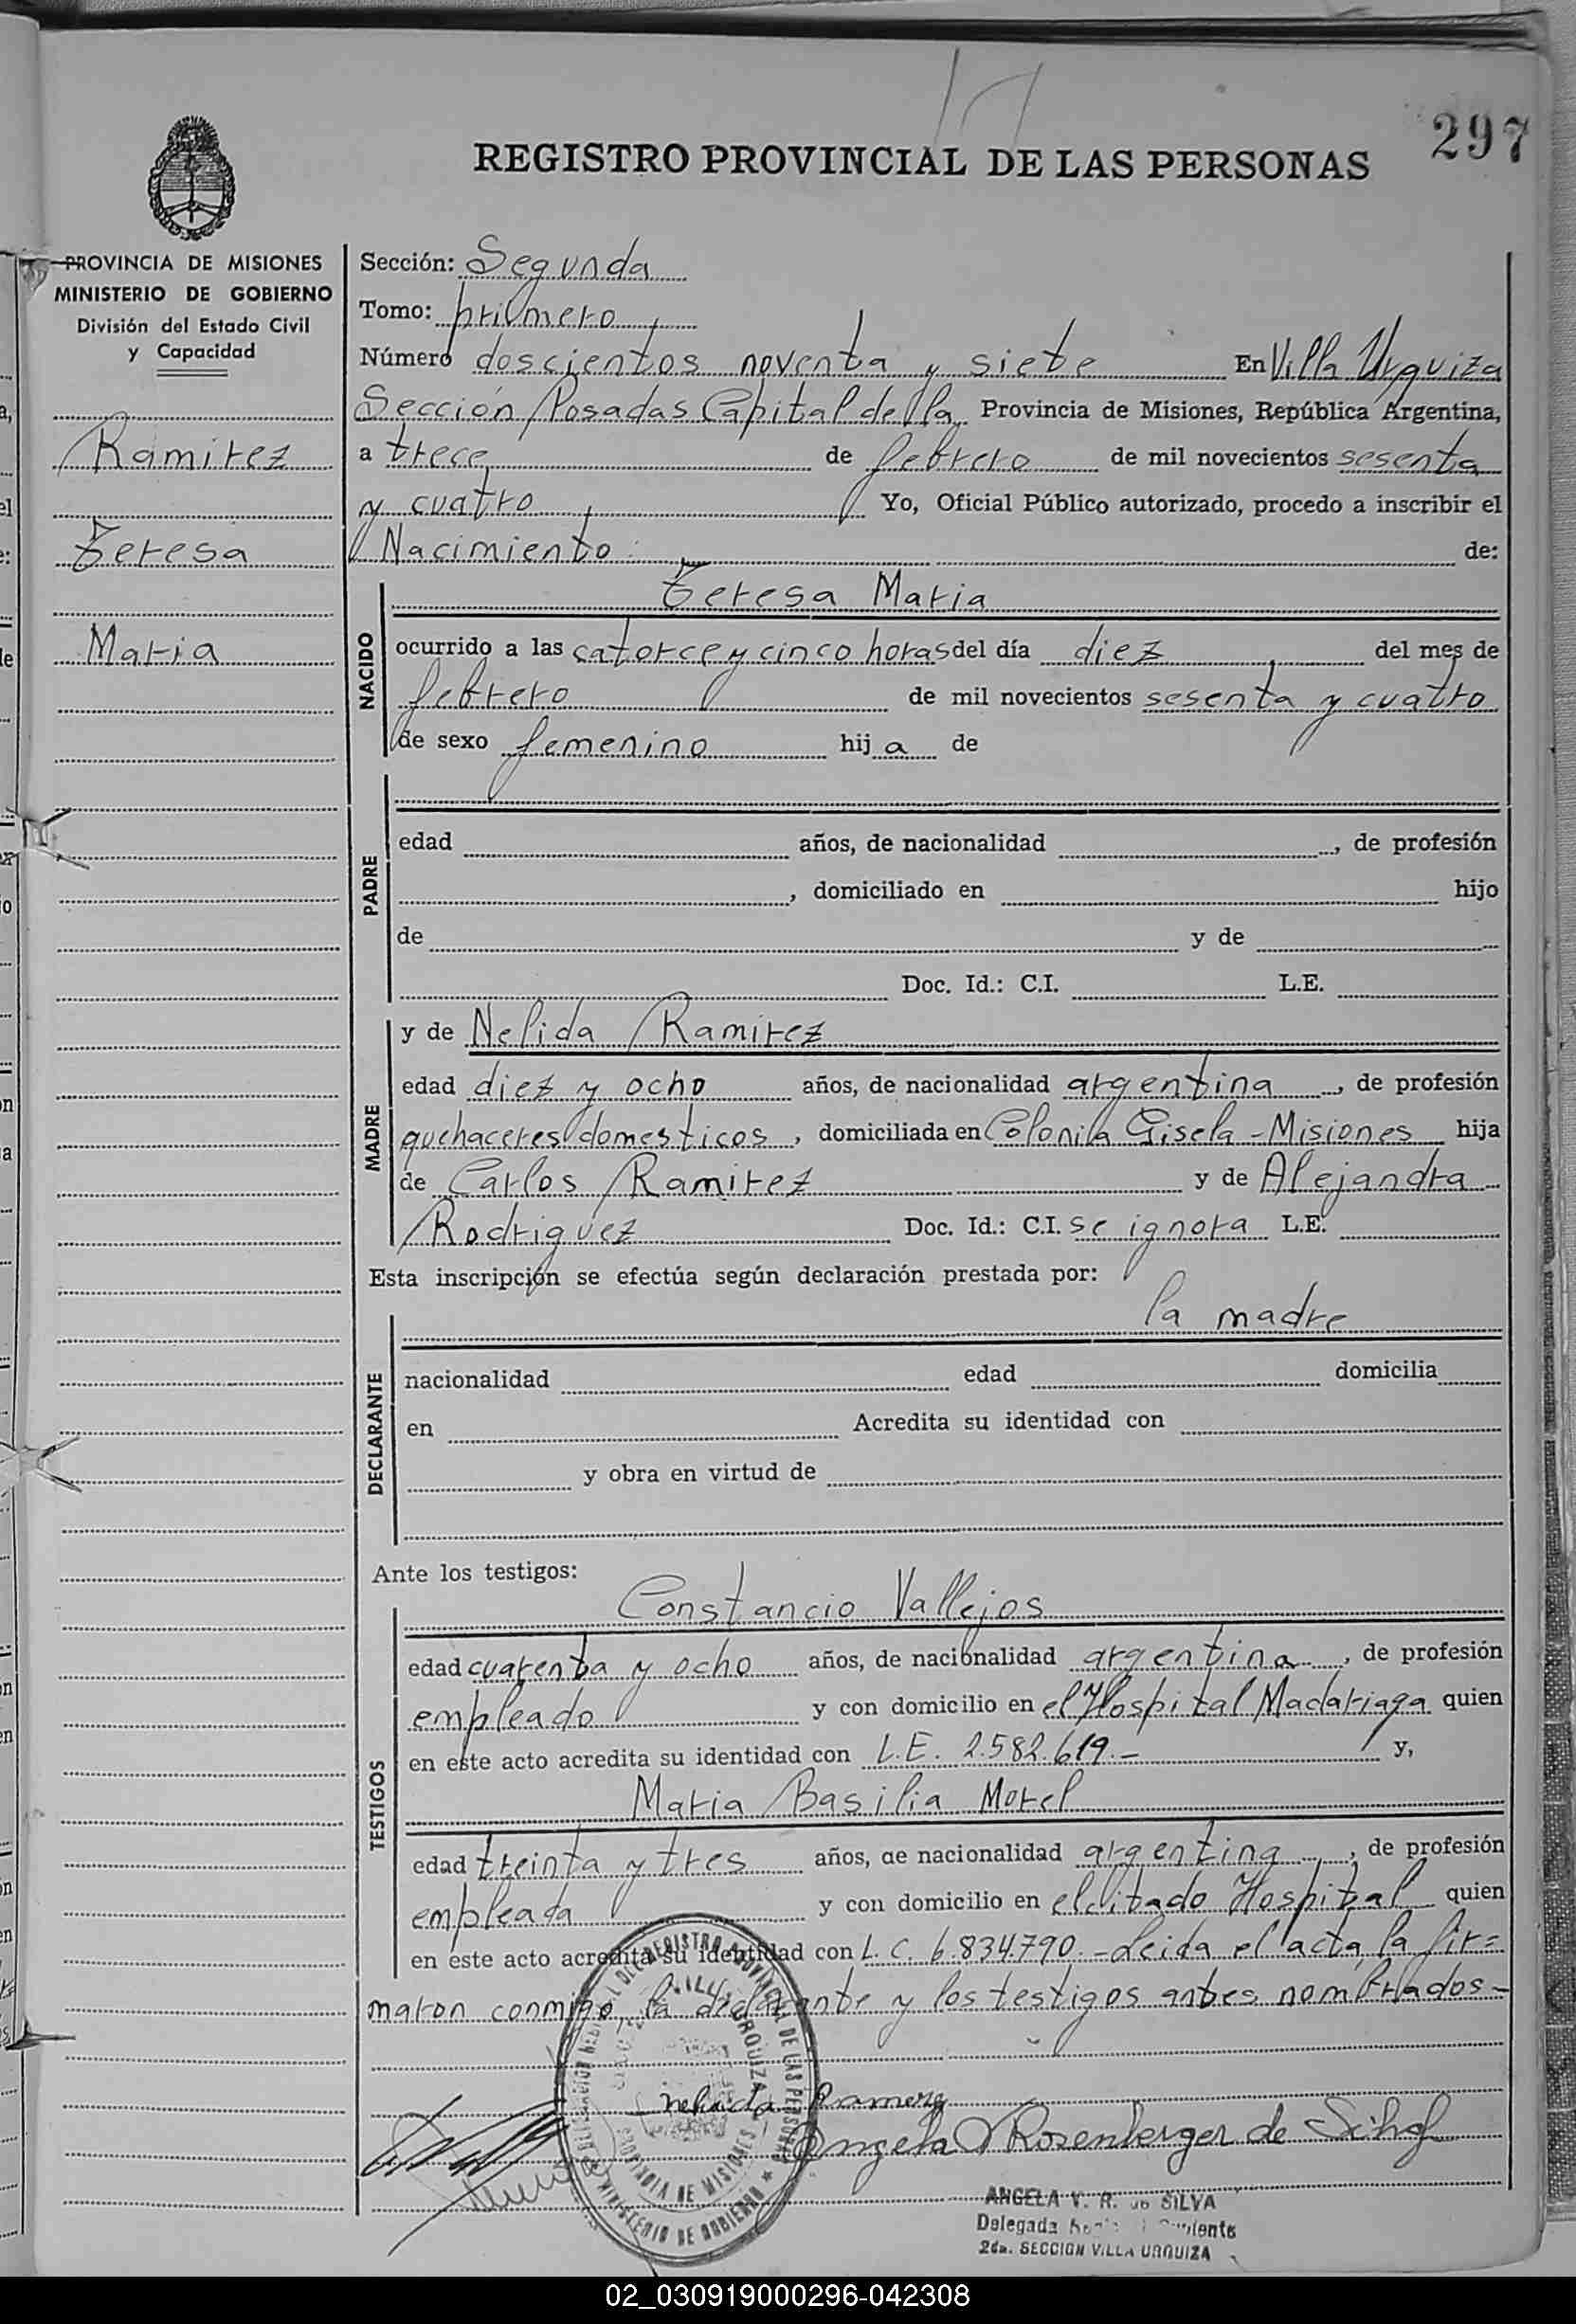 297
REGISTRO PROVINCIAL DE LAS PERSONAS
PROVINCIA DE MISIONES
MINISTERIO DE GOBIERNO
División del Estado Civil
y Capacidad
Ramirez
Teresa
Maria
Sección: Segunda
Tomo: primero
Número doscientos noventa y siete En Villa Urquiza
Sección Posadas Capital de la Provincia de Misiones, República Argentina,
a trece de febrero de mil novecientos sesenta
y cuatro Yo, Oficial Público autorizado, procedo a inscribir el
Nacimiento de:
NACIDO
Teresa Maria
ocurrido a las catorce y cinco horas del día diez del mes de
febrero de mil novecientos sesenta y cuatro
de sexo femenino hija de
PADRE
edad años, de nacionalidad , de profesión
, domiciliado en hijo
de y de
Doc. Id.: C.I. L.E.
MADRE
y de Nelida Ramirez
edad diez y ocho años, de nacionalidad argentina , de profesión
quehaceres domesticos , domiciliada en Colonia Gisela - Misiones hija
de Carlos Ramirez y de Alejandra
Rodriguez Doc. Id.: C.I. se ignora L.E.
Esta inscripción se efectúa según declaración prestada por:
la madre
DECLARANTE
nacionalidad edad domicilia
en Acredita su identidad con
y obra en virtud de
Ante los testigos:
TESTIGOS
Constancio Vallejos
edad cuarenta y ocho años, de nacionalidad argentina , de profesión
empleado y con domicilio en el Hospital Madariaga quien
en este acto acredita su identidad con L.E. 2.582.619.- y,
Maria Basilia Morel
edad treinta y tres años, de nacionalidad argentina , de profesión
empleada y con domicilio en el citado Hospital quien
en este acto acredita su identidad con L.C. 6.834.790.- Leida el acta, la fir=
maron conmigo, la declarante y los testigos antes nombrados-
Angela V Rosenberger de Silva
ANGELA V. R. de SILVA
Delegada
2da. SECCION VILLA URQUIZA
PROVINCIA DE MISIONES
MINISTERIO DE GOBIERNO
02_030919000296-042308